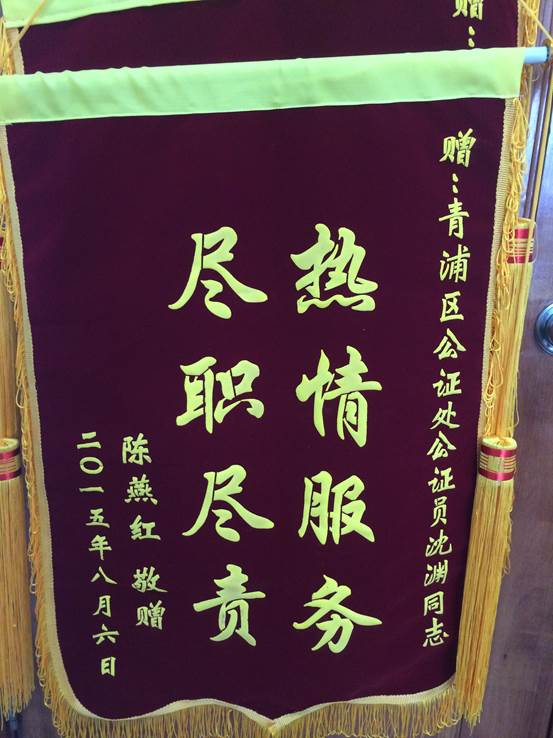 赠:
赠:青浦区公证处公证员沈渊同志
热情服务
尽职尽责
陈燕红 敬赠
二〇一五年八月六日